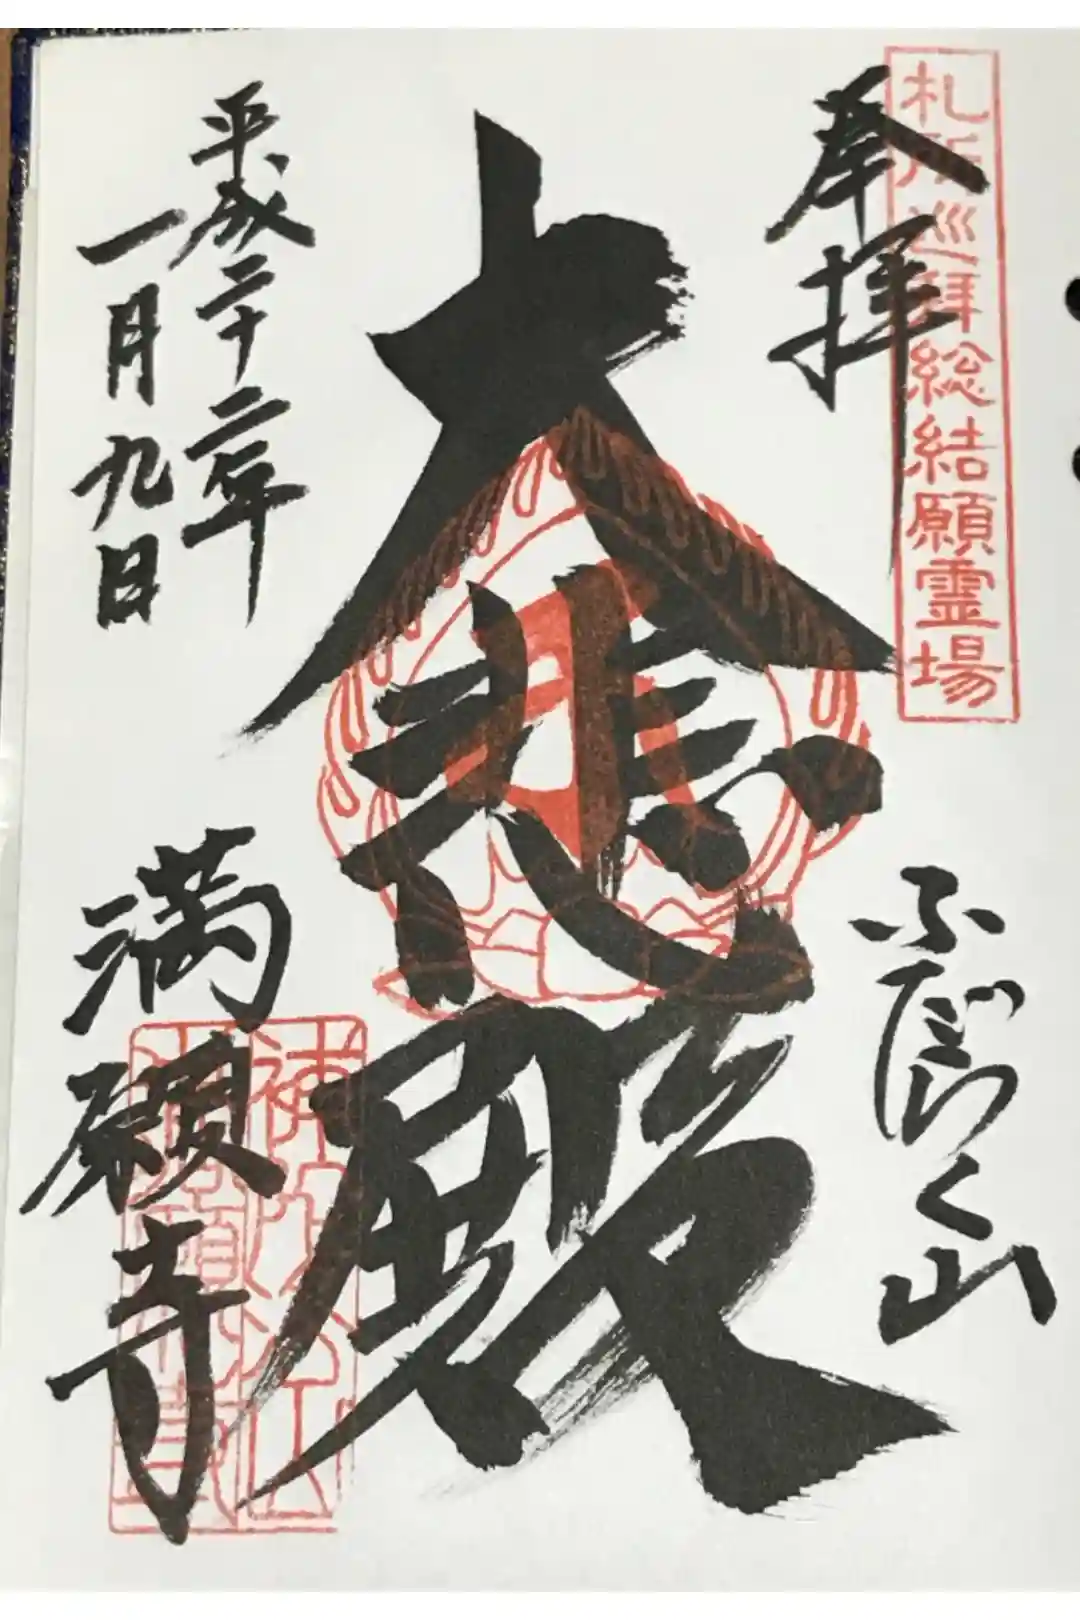 札所巡拜総結願霊場
奉拝
ふだらく山
大悲殿
平成二十二年
一月九日
満願寺